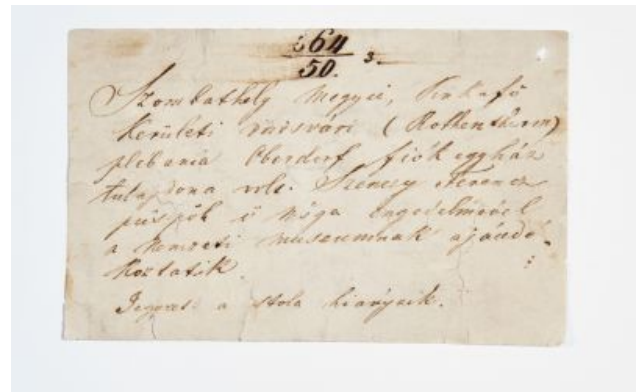 64
50. 3.
Szombathely Megyei,
Kerületi vasvári (Rothenthurm)
plebania Oberdorf fiók egyház
tulajdona volt. Szenczy Ferencz
püspök ő nága engedelmével
a Nemzeti museumnak ajándé-
koztatik.
a stola hiányzik.